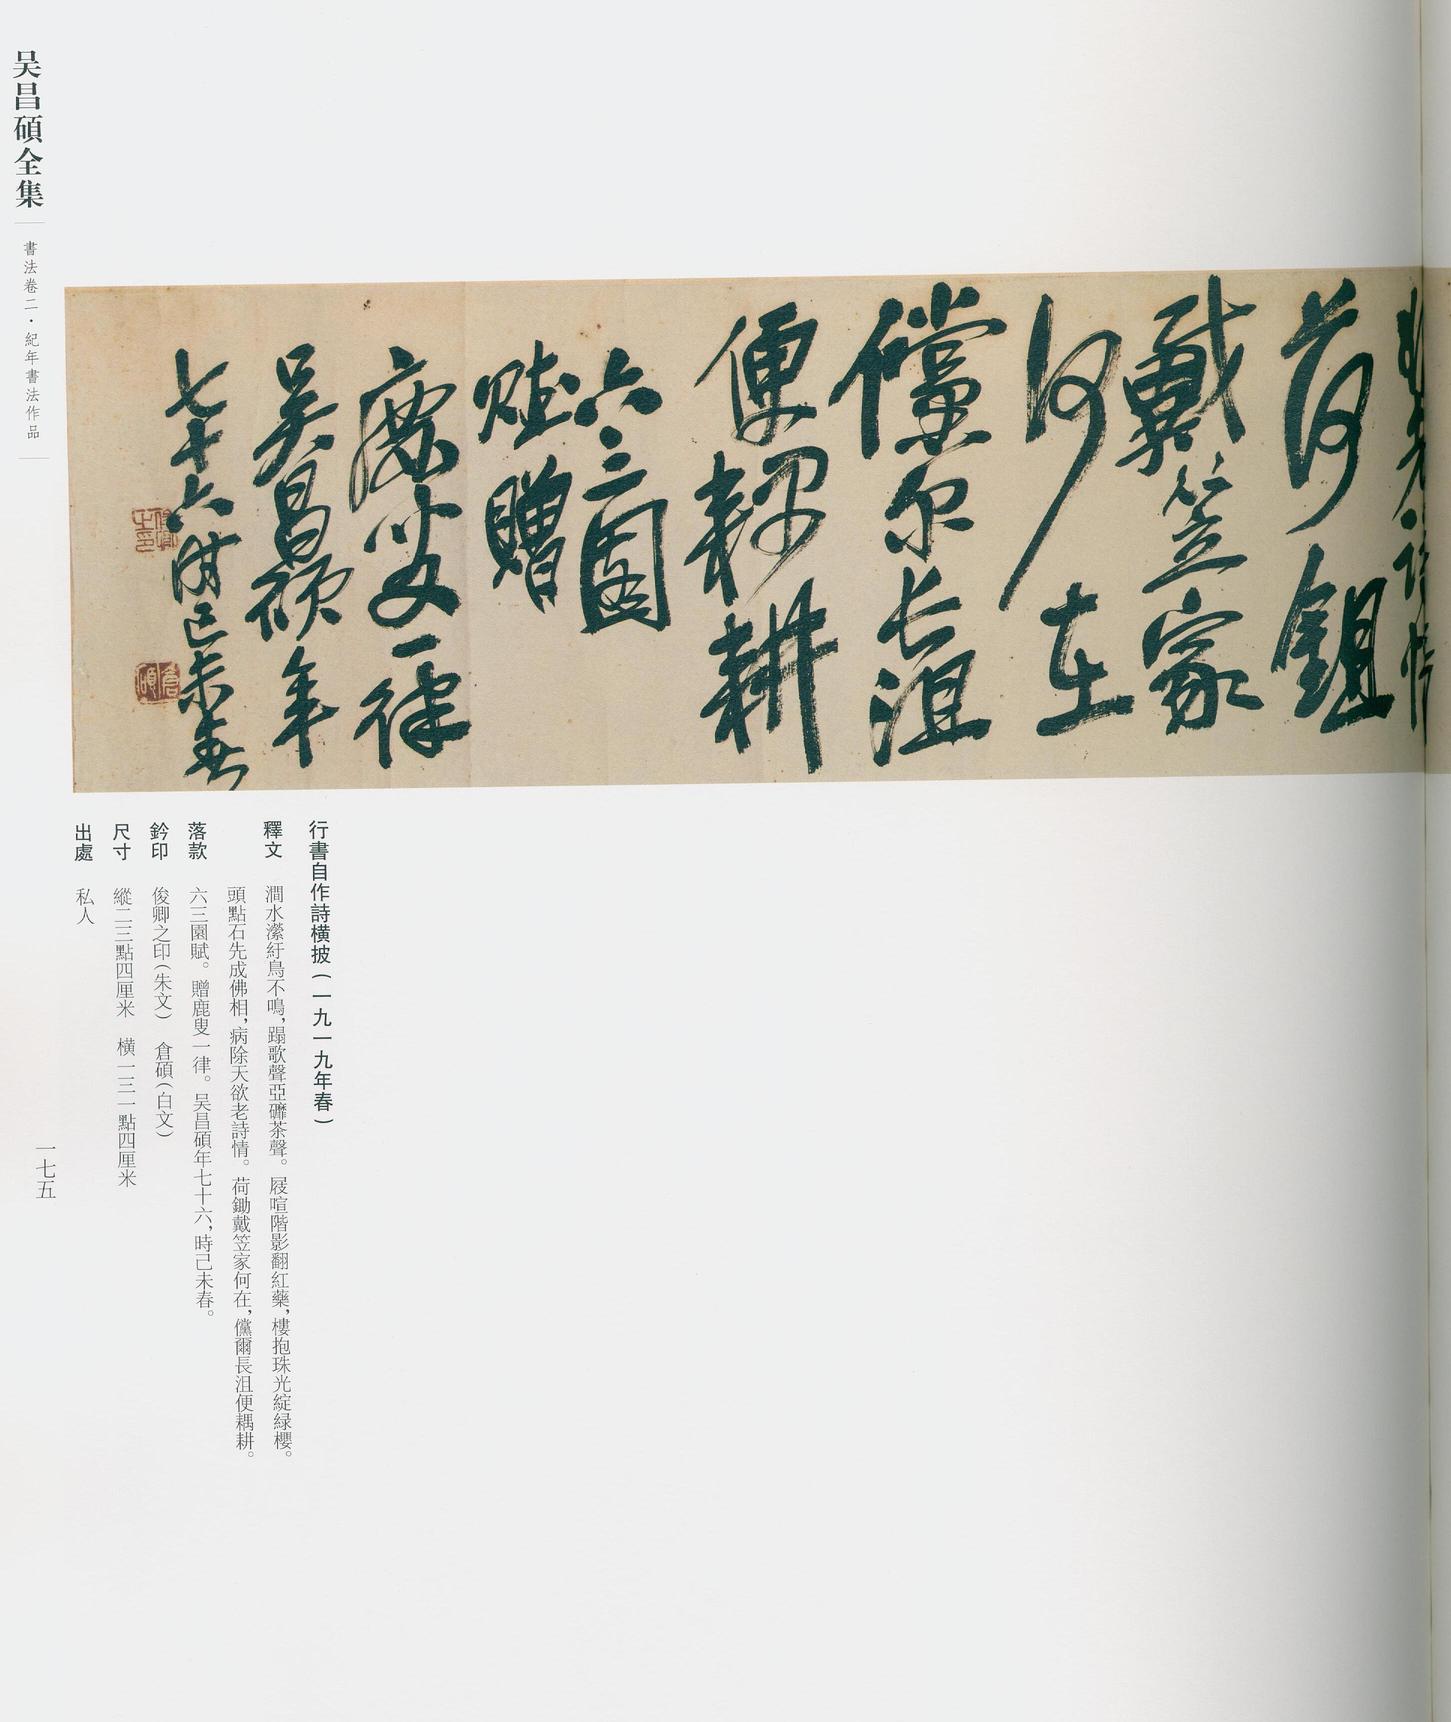 荷鉏
戴笠家
何在
儻尔長沮
便耦耕
六三園
賦贈
鹿叟一律
吴昌碩年
七十六時己未春
俊卿之印
倉碩
行書自作詩橫披(一九一九年春)
釋文 澗水瀠紆鳥不鳴,蹋歌聲亞磨茶聲。屐喧階影翻紅藥,樓抱珠光綻緑櫻。
頭點石先成佛相,病除天欲老詩情。荷鋤戴笠家何在,儻爾長沮便耦耕。
落款 六三園賦。贈鹿叟一律。吴昌碩年七十六,時己未春。
鈐印 俊卿之印(朱文) 倉碩(白文)
尺寸 縱二三點四厘米 橫一三一點四厘米
出處 私人
吴昌碩全集
書法卷二·紀年書法作品
一七五